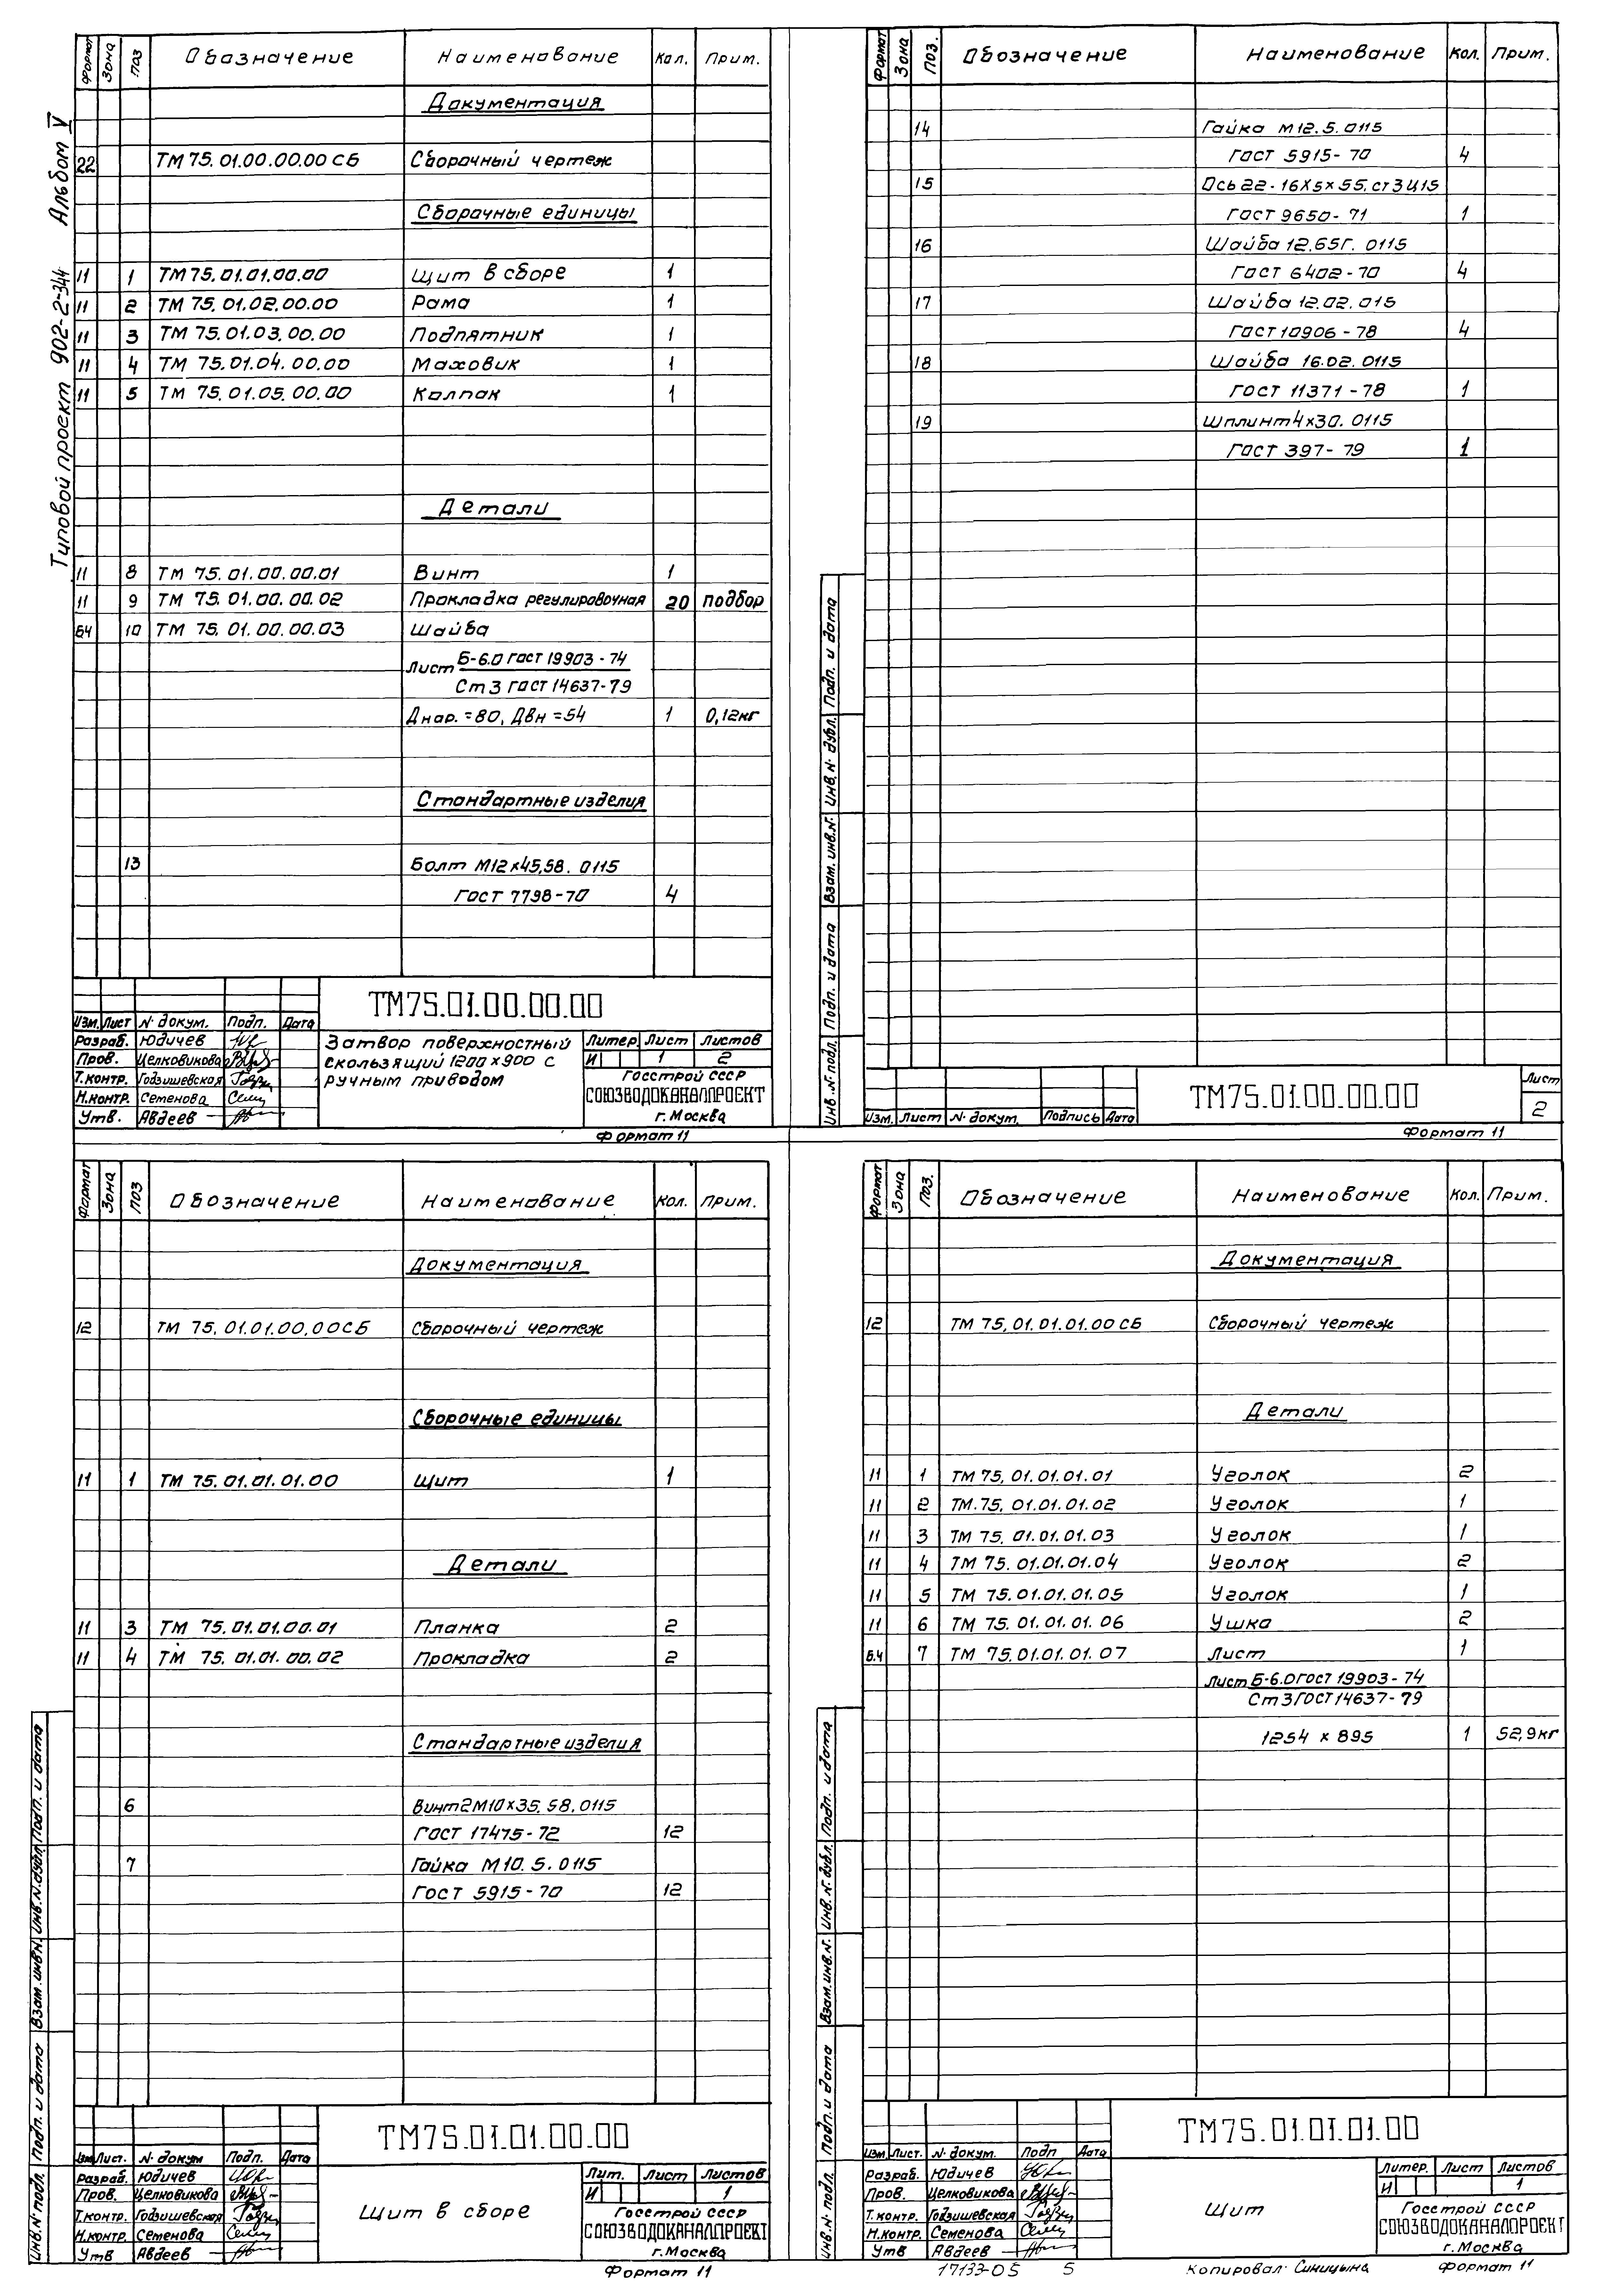 Типовой проект 902-2-344 Альбом V
Формат Зона Поз Обазначение Наименование Кол. Прим.
Документация
22 ТМ 75.01.00.00.00 СБ Сборочный чертеж
Сборочные единицы
11 1 ТМ 75.01.01.00.00 Щит в сборе 1
11 2 ТМ 75.01.02.00.00 Рама 1
11 3 ТМ 75.01.03.00.00 Подпятник 1
11 4 ТМ 75.01.04.00.00 Маховик 1
11 5 ТМ 75.01.05.00.00 Колпак 1
Детали
11 8 ТМ 75.01.00.00.01 Винт 1
11 9 ТМ 75.01.00.00.02 Прокладка регулировочная 20 подбор
БЧ 10 ТМ 75.01.00.00.03 Шайба
Лист Б-6.0 ГОСТ 19903-74
Ст3 ГОСТ 14637-79
Днар.=80, Двн=54 1 0,12кг
Стандартные изделия
13 Болт М12×45,58.0115
ГОСТ 7798-70 4
ТМ75.01.00.00.00
Изм. Лист N докум. Подп. Дата
Разраб. Юдичев
Пров. Целковикова
Т.контр. Годзишевская
Н.контр. Семенова
Утв. Авдеев
Затвор поверхностный
скользящий 1200×900 с
ручным приводом
Литер. Лист Листов
И 1 2
Госстрой СССР
СОЮЗВОДОКАНАЛПРОЕКТ
г. Москва
Формат 11
Формат Зона Поз. Обозначение Наименование Кол. Прим.
14 Гайка М12.5.0115
ГОСТ 5915-70 4
15 Ось 22-16×5×55.ст3Ц15
ГОСТ 9650-71 1
16 Шайба 12.65Г.0115
ГОСТ 6402-70 4
17 Шайба 12.02.015
ГОСТ 10906-78 4
18 Шайба 16.02.0115
ГОСТ 11371-78 1
19 Шплинт 4×30.0115
ГОСТ 397-79 1
Инв. N подл. Подп. и дата Взам. инв. N. Инв. N дубл. Подп. и дата
Изм. Лист N докум. Подпись Дата
ТМ75.01.00.00.00
Лист
2
Формат 11
Формат Зона Поз Обозначение Наименование Кол. Прим.
Документация
12 ТМ 75.01.01.00.00СБ Сборочный чертеж
Сборочные единицы
11 1 ТМ 75.01.01.01.00 Щит 1
Детали
11 3 ТМ 75.01.01.00.01 Планка 2
11 4 ТМ 75.01.01.00.02 Прокладка 2
Стандартные изделия
6 Винт2М10×35.58.0115
ГОСТ 17475-72 12
7 Гайка М10.5.0115
ГОСТ 5915-70 12
Инв. N подл. Подп. и дата Взам. инв. N. Инв. N. дубл. Подп. и дата
ТМ75.01.01.00.00
Изм Лист. N докум Подп. Дата
Разраб. Юдичев
Пров. Целковикова
Т.контр. Годзишевская
Н.контр. Семенова
Утв Авдеев
Щит в сборе
Лит. Лист Листов
И 1
Госстрой СССР
СОЮЗВОДОКАНАЛПРОЕКТ
г. Москва
Формат 11
Формат Зона Поз. Обозначение Наименование Кол. Прим.
Документация
12 ТМ 75.01.01.01.00 СБ Сборочный чертеж
Детали
11 1 ТМ 75.01.01.01.01 Уголок 2
11 2 ТМ.75.01.01.01.02 Уголок 1
11 3 ТМ 75.01.01.01.03 Уголок 1
11 4 ТМ 75.01.01.01.04 Уголок 2
11 5 ТМ 75.01.01.01.05 Уголок 1
11 6 ТМ 75.01.01.01.06 Ушко 2
Б.Ч 7 ТМ 75.01.01.01.07 Лист 1
Лист Б-6.0 ГОСТ 19903-74
Ст3 ГОСТ 14637-79
1254 × 895 1 52,9кг
Инв. N подл. Подп. и дата Взам. инв. N. Инв. N. дубл. Подп. и дата
ТМ75.01.01.01.00
Изм Лист. N докум. Подп Дата
Разраб. Юдичев
Пров. Целковикова
Т.контр. Годзишевская
Н.контр. Семенова
Утв Авдеев
Щит
Литер. Лист Листов
И 1
Госстрой СССР
СОЮЗВОДОКАНАЛПРОЕКТ
г. Москва
17133-05 5 Копировал: Синицына Формат 11